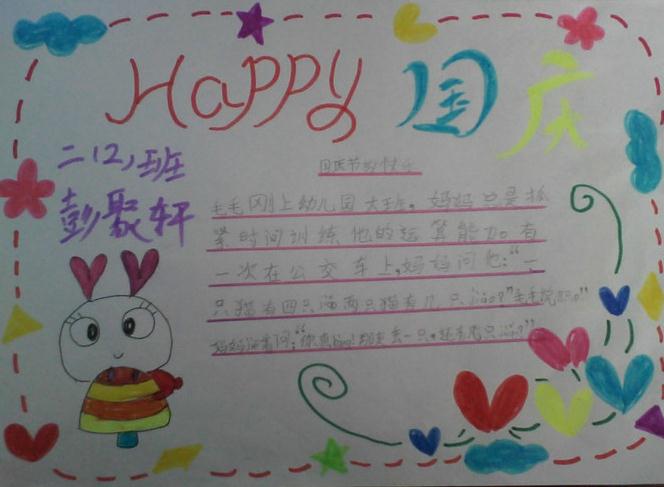 Happy 国庆
二（2）班
彭聚轩
国庆节的快乐
毛毛刚上幼儿园大班。妈妈只是抓
紧时间训练他的运算能力。有
一次在公交车上,妈妈问他:“一
只猫有四只脚两只猫有几只脚?”毛毛说:8只。”
妈妈 问:“你真 丢一只,还有几只 ?”